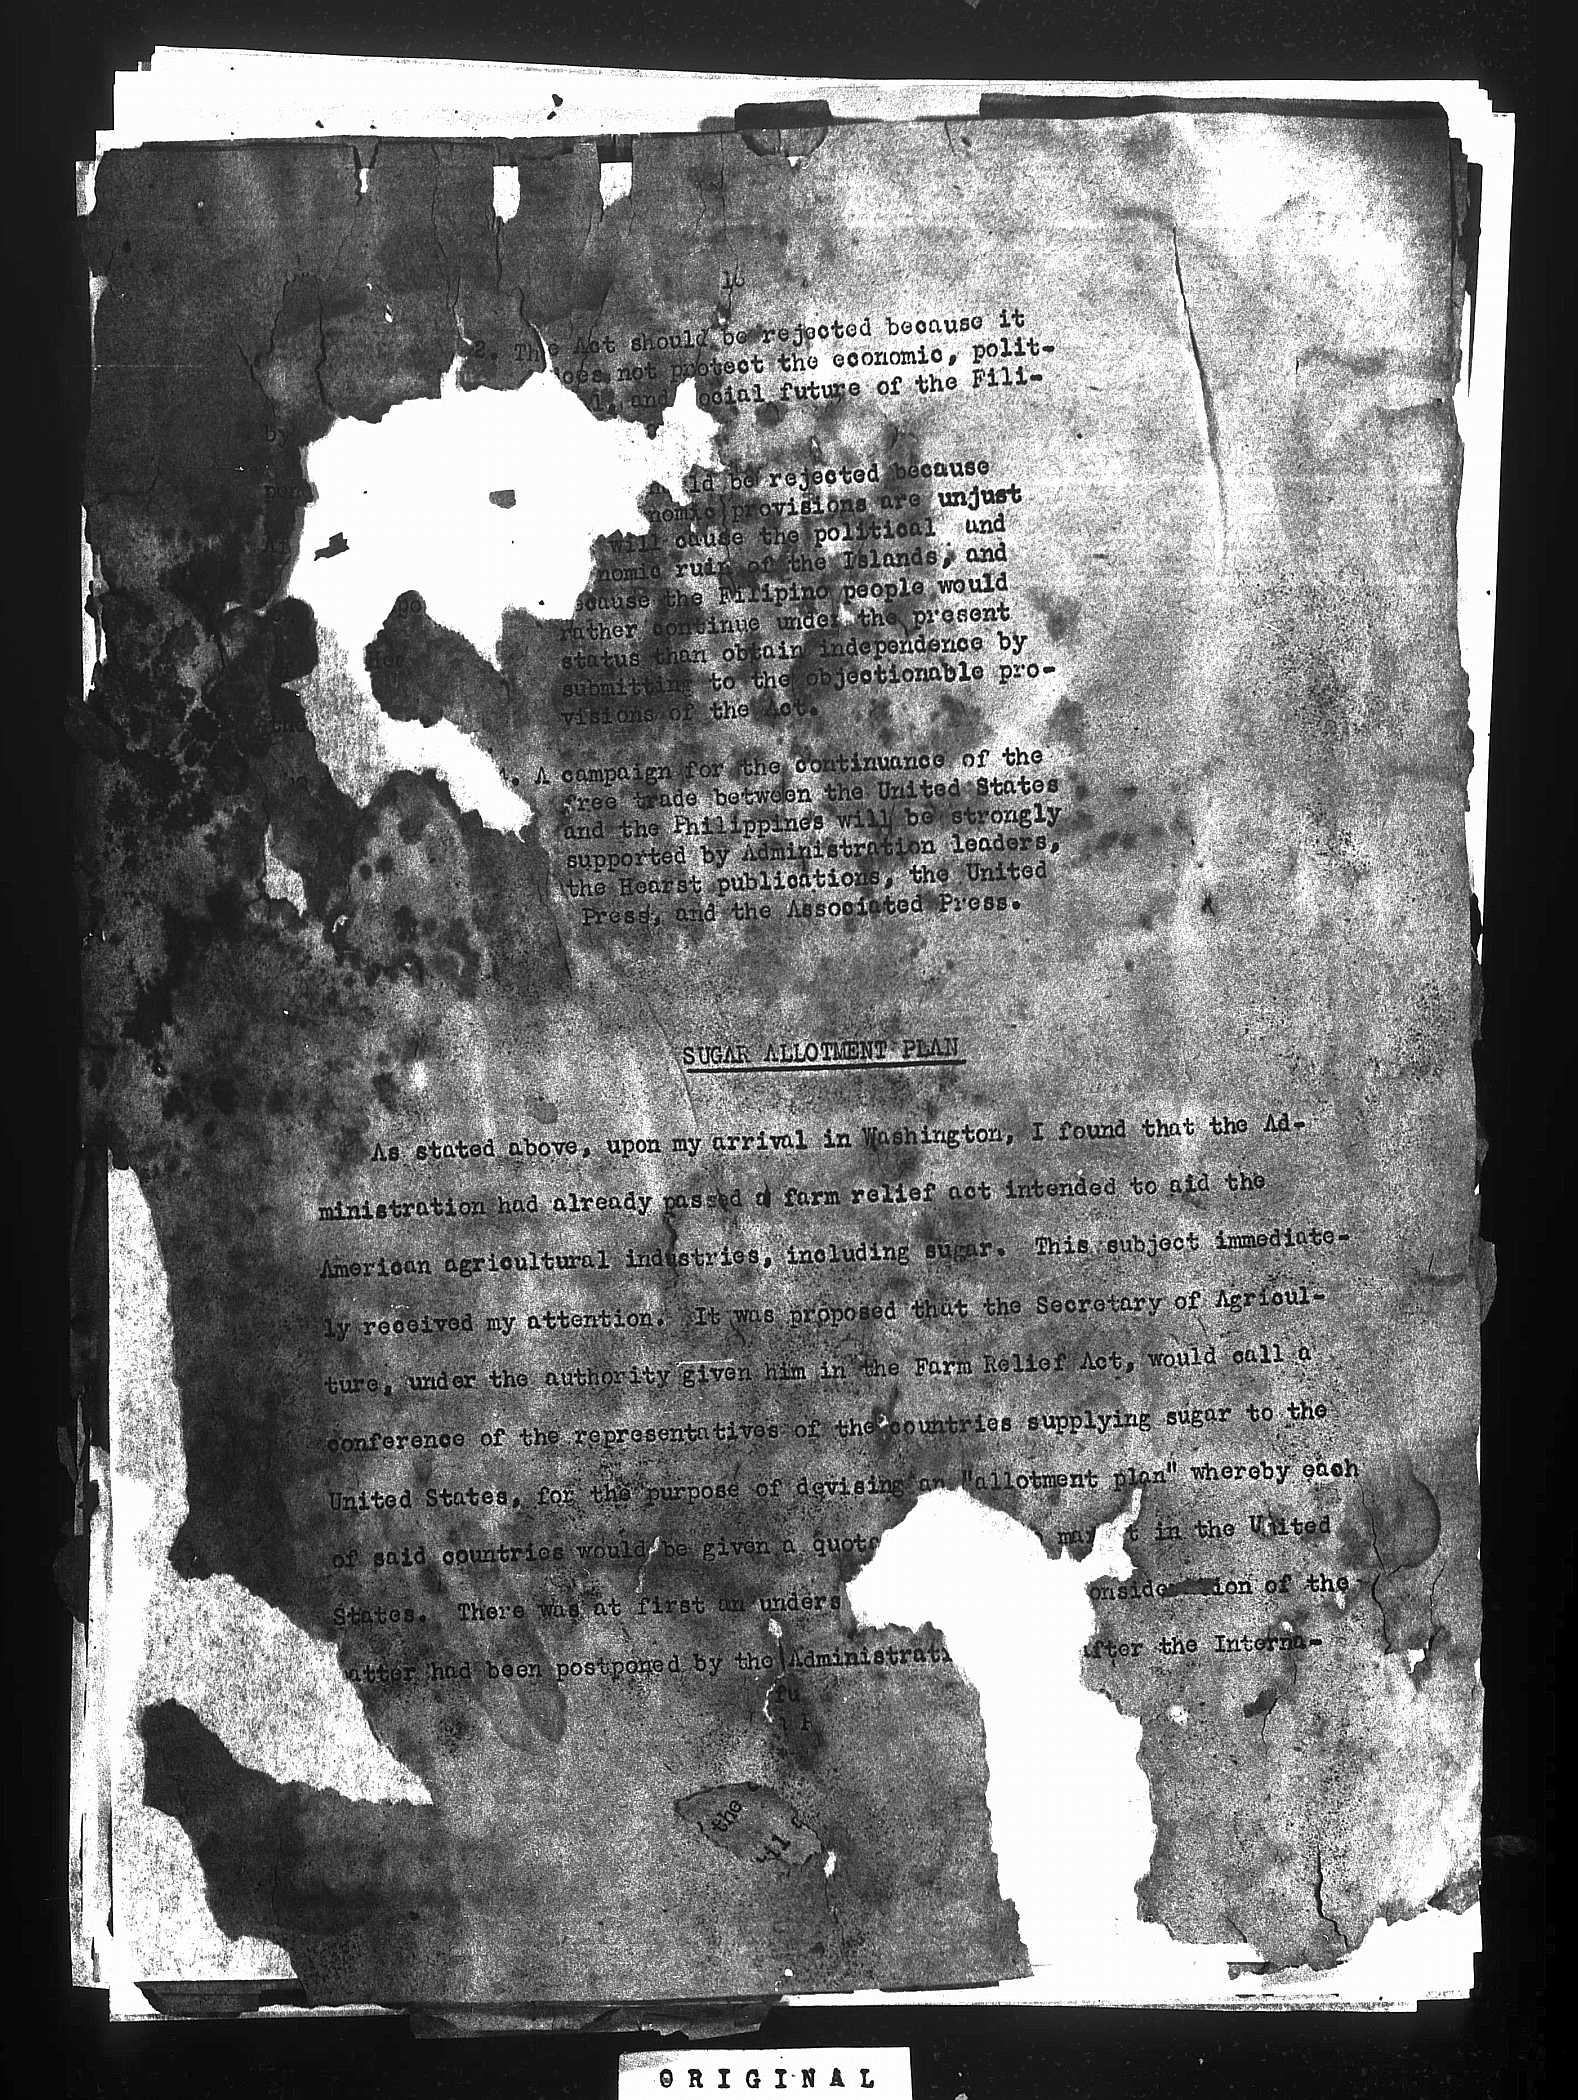 16
2. The Act should be rejected because it
does not protect the economic, polit-
and social future of the Fili-
by
be rejected because
provisions are unjust
will cause the political and
ruin of the Islands, and
because the Filipino people would
rather continue under the present
status than obtain independence by
submitting to the objectionable pro-
visions of the Act.
A campaign for the continuance of the
free trade between the United States
and the Philippines will be strongly
supported by Administration leaders,
the Hearst publications, the United
Press, and the Associated Press.
SUGAR ALLOTMENT PLAN
As stated above, upon my arrival in Washington, I found that the Ad-
ministration had already passed a farm relief act intended to aid the
American agricultural industries, including sugar. This subject immediate-
ly received my attention. It was proposed that the Secretary of Agricul-
ture, under the authority given him in the Farm Relief Act, would call a
conference of the representatives of the countries supplying sugar to the
United States, for the purpose of devising an "allotment plan" whereby each
of said countries would be given a quot may t in the United
States. There was at first an unders onside ion of the
atter had been postponed by the Administrati after the Interna-
the
ORIGINAL